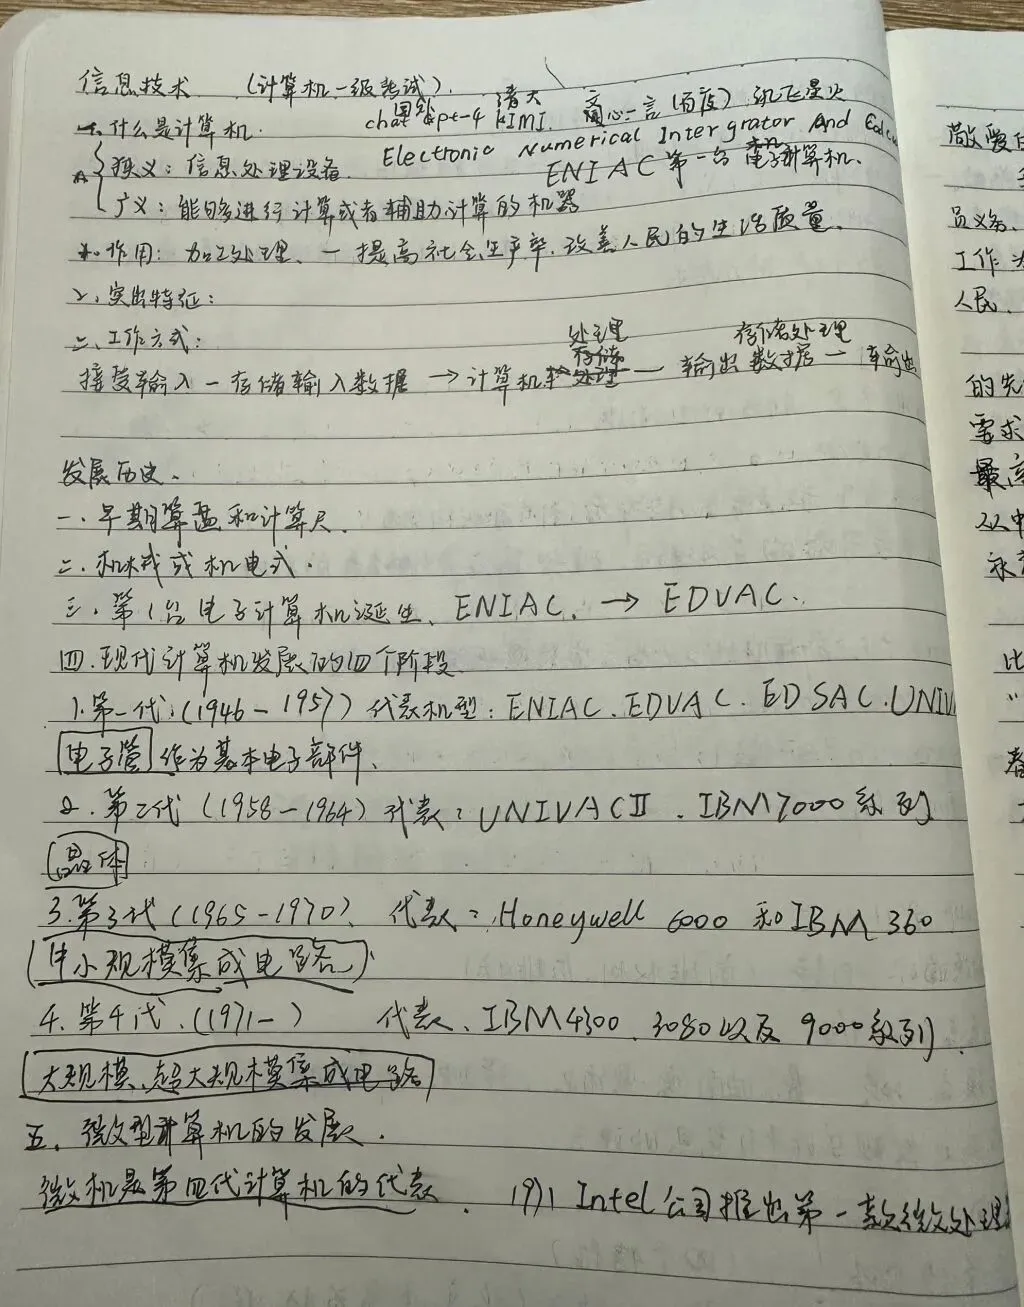 信息技术 (计算机一级考试).
国外 清大 文
chat gpt-4 kIMI. 心一言(百度) 讯飞星火
一. 什么是计算机.
Electronic Numerical Intergrator And Calcu
狭义: 信息处理设备.
ENIAC第一台电子计算机.
广义: 能够进行计算或者辅助计算的机器
作用: 加工处理、一提高社会生产率.改善人民的生活质量.
2. 突出特征:
二、工作方式:
处理 存储处理
存储
接受输入一存储输入数据 → 计算机 处理 一 输出数据 一 输出
发展历史.
一. 早期算盘和计算尺.
二. 机械或机电式.
三. 第1台电子计算机诞生. ENIAC. → EDVAC.
四.现代计算机发展的四个阶段
1.第一代:(1946-1957) 代表机型: ENIAC.EDVAC.EDSAC.UNIV
电子管 作为基本电子部件.
2. 第二代 (1958-1964) 代表: UNIVACⅡ. IBM7000系列
晶体
3.第3代 (1965-1970). 代表: Honeywell 6000 和IBM 360
(中小规模集成电路)
4. 第4代. (1971- ) 代表. IBM4300. 3080以及 9000系列.
大规模、超大规模集成电路
五. 微型计算机的发展.
微机是第四代计算机的代表. 1971 Intel公司推出第一款微处理
敬爱
工作
人民.
的先
需求
最高
从中
永
比
春